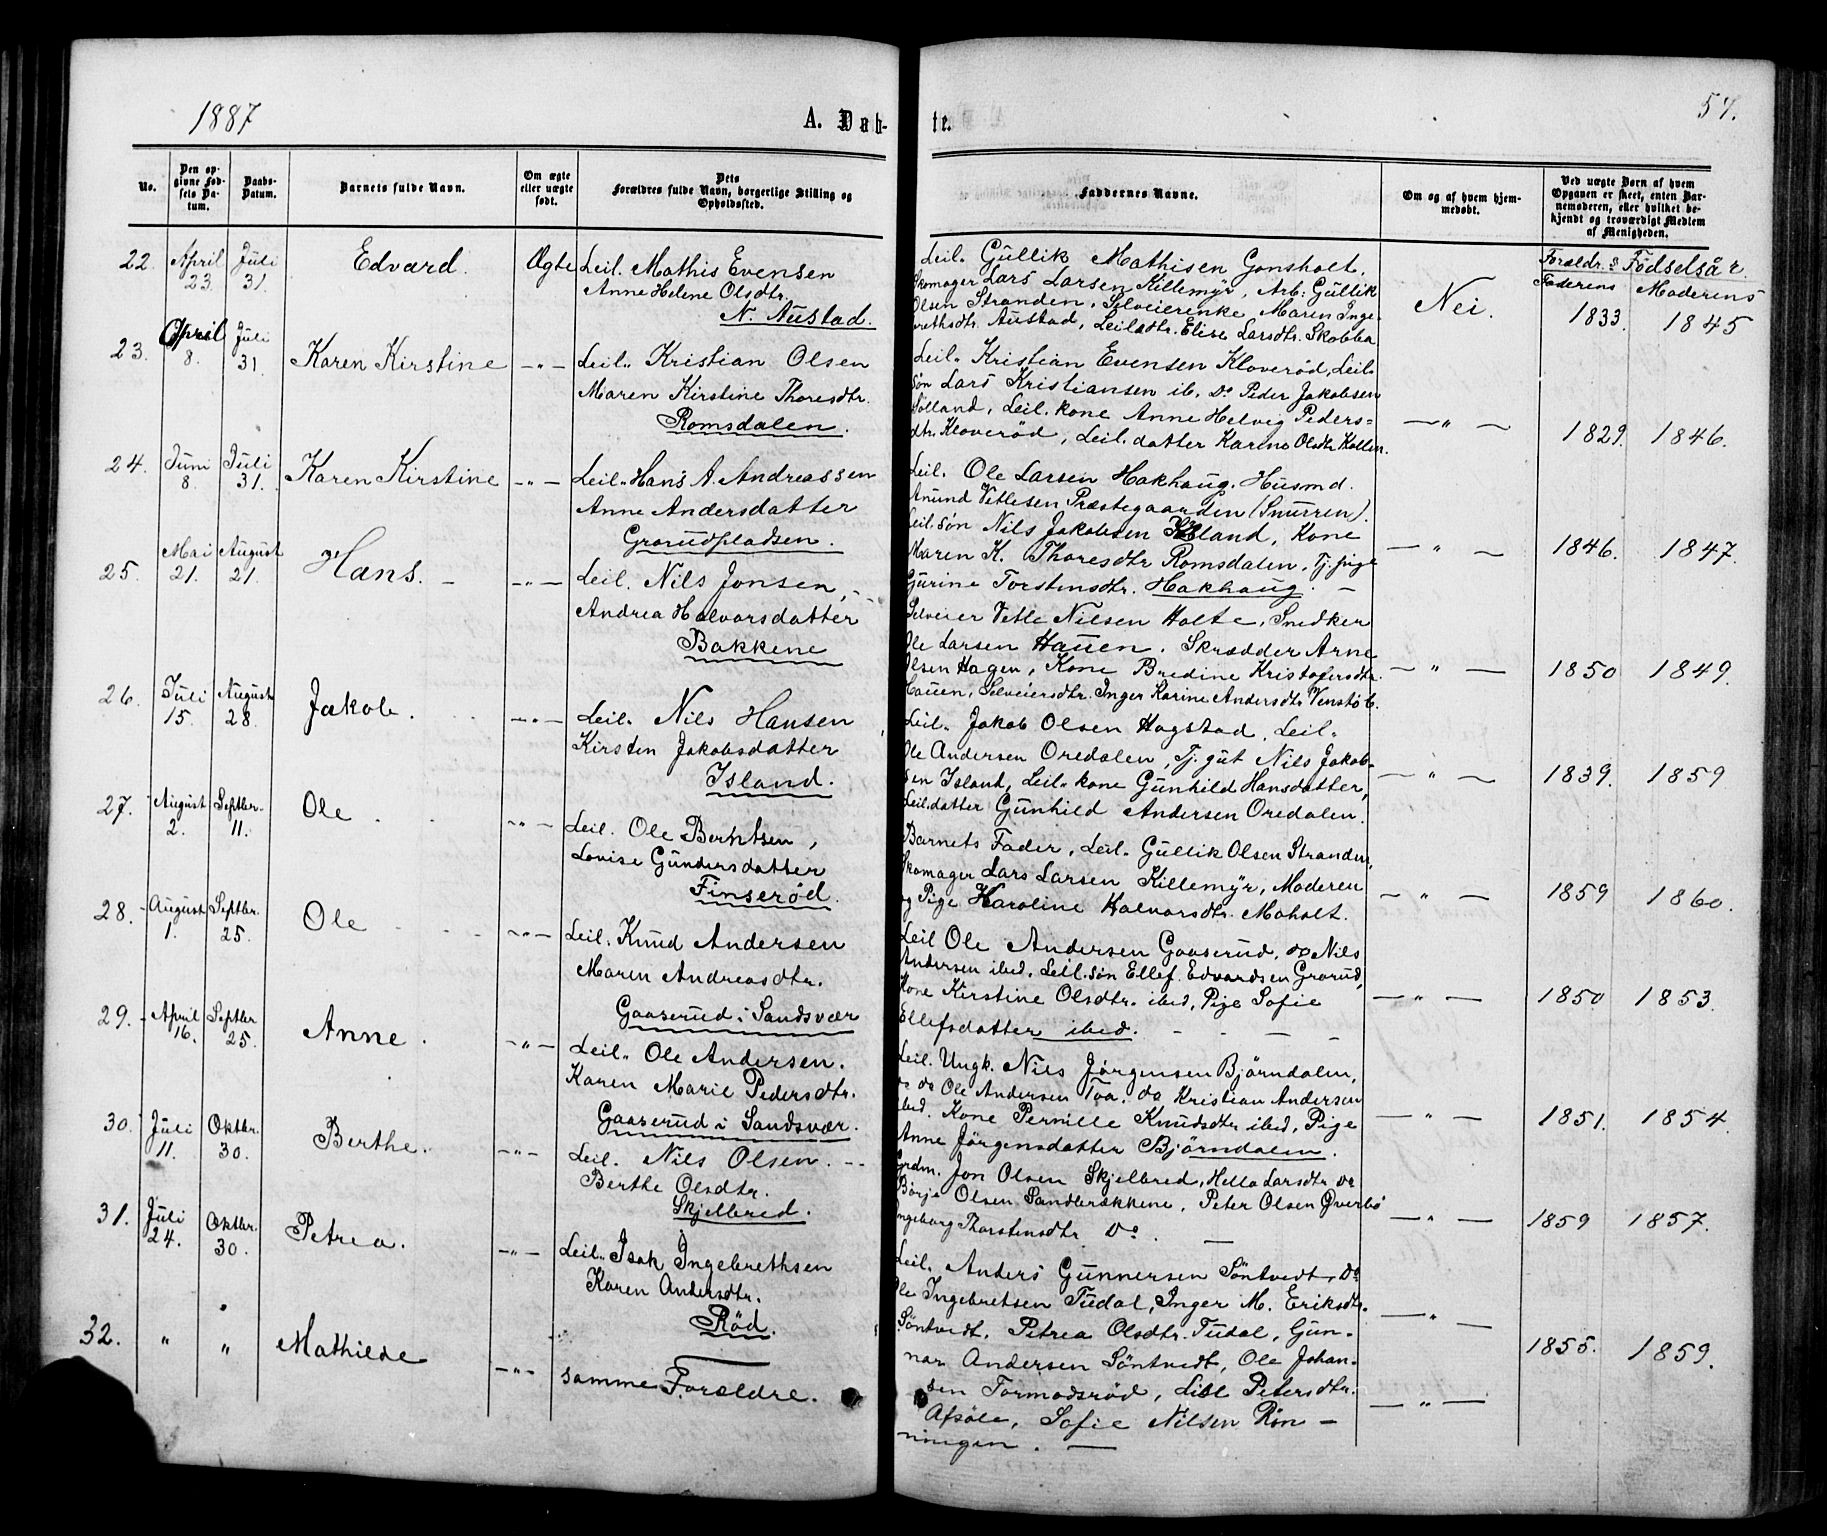 1887
A. Døb-
te.
57.
No.
Den op-
givne Fød-
sels Da-
tum.
Daabs-
Datum.
Barnets fulde Navn.
Om ægte
eller uægte
født.
Dets
Forældres fulde Navn, borgerlige Stilling og
Opholdssted.
Faddernes Navne.
Om og af hvem hjem-
medøbt.
Ved uægte Børn af hvem
Opgaven er skeet, enten Bar-
nemoderen, eller hvilket be-
kjendt og troværdigt Medlem
af Menigheden.
Forældr.s Födselsår.
Faderens Moderens
22. April 23. Juli 31. Edvard. Ægte
Leil. Mathis Evensen
Anne Helene Olsdtr.
N. Austad.
Leil. Gullik Mathisen Gonsholt,
Skomager Lars Larsen Killemyr, Arb. Gullik
Olsen Stranden, Selveierenke Maren Inge-
brethsdtr. Austad, Leilsdtr. Elise Larsdtr. Skobba
Nei. 1833. 1845
23. April 8. Juli 31. Karen Kirstine —"—
Leil. Kristian Olsen
Maren Kirstine Thoresdtr.
Romsdalen.
Leil. Kristian Evensen Kloveröd, Leil.
søn Lars Kristiansen ib. Do Peder Jakobsen
Kone Anne Helvig Peders=
dtr. Kloveröd, Leil. datter Karine Olsdtr Kollen.
—"— 1829. 1846.
24. Juni 8. Juli 31. Karen Kirstine —"—
Leil. Hans A. Andreassen
Anne Andersdatter
Grorudpladsen.
Leil. Ole Larsen Hakhaug. Husmd.
Anund Vetlesen Præstegaarden (Snurren).
Leil. søn Nils Jakobsen Island, Kone
Maren K. Thoresdtr Romsdalen, Tj. pige
Gurine Torstensdtr. Hakhaug. —
—"— 1846. 1847.
25. Mai 21. August 21. Hans. —"—
Leil. Nils Jonsen,
Andrea Halvorsdatter
Bakkene
Selveier Vetle Nilsen Holte, Snedker
Ole Larsen Hauen. Skrædder Arne
Olsen Hagen, Kone Bredine Kristofersdtr
Hauen, Selveiersdtr. Inger Karine Andersdtr Venstöb.
—"— 1850 1849.
26. Juli 15. August 28. Jakob. —"—
Leil. Nils Hansen
Kirsten Jakobsdatter
Island.
Leil. Jakob Olsen Hogstad, Leil.
Ole Andersen Oredalen, Tj. gut Nils Jakob-
sen Island, Leil. kone Gunhild Hansdatter,
Leil. datter Gunhild Andersen Oredalen.
—"— 1839. 1859
27. August 2. Septbr. 11. Ole —"—
Leil. Ole Berntsen,
Lovise Gundersdatter
Finseröd.
Barnets Fader, Leil. Gullik Olsen Stranden,
Skomager Lars Larsen Killemyr, Moderen
og Pige Karoline Halvorsdtr. Moholt.
—"— 1859 1860.
28. August 1. Septbr. 25. Ole —"—
Leil. Knud Andersen
Maren Andreasdtr.
Gaaserud i Sandsvær
Leil Ole Andersen Gaaserud, do Nils
Andersen ibid, Leil. søn Ellef. Edvardsen Grorud,
Kone Kirstine Olsdtr. ibid, Pige Sofie
Ellefsdatter ibid. — — —
—"— 1850 1853.
29. April 16. Septbr 25. Anne. —"—
Leil. Ole Andersen.
Karen Marie Pedersdtr.
Gaaserud i Sandsvær.
Leil. Ungk. Nils Jørgensen Björndalen,
do do Ole Andersen Toa. do Kristian Andersen
ibid. Kone Pernille Knudsdtr ibid, Pige
Anne Jörgensdatter Björndalen.
—"— 1851. 1854.
30. Juli 11. Oktbr. 30. Berthe. —"—
Leil. Nils Olsen.
Berthe Olsdtr.
Skjelbred.
Grdm. Jon Olsen Skjelbred, Hella Larsdtr do
Börje Olsen Sandbrækkene, Peter Olsen Överbö
Ingeborg Thorstensdtr Do. —
—"— 1859 1857.
31. Juli 24. Oktbr. 30. Petrea. —"—
Leil. Isak Ingebrethsen
Karen Andersdtr.
Röd.
Leil. Anders Gunnersen Söntvedt, Do
Ole Ingebretsen Tudal, Inger M. Eriksdtr.
Söntvedt, Petrea Olsdtr. Tudal, Gun-
nar Andersen Söntvedt, Ole Johan-
sen Tormodsröd, Petersdtr.
Sofie Nilsen Rön-
ningen. —
—"— 1855. 1859.
32. " " Mathilde —"—
samme Forældre.
—"—